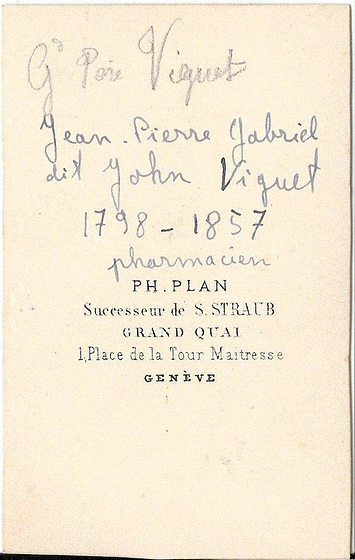 Gd Père Viguet
Jean-Pierre Gabriel
dit John Viguet
1798-1857
pharmacien
PH. PLAN
Successeur de S. STRAUB
GRAND QUAI
1, Place de la Tour Maitresse
GENÈVE